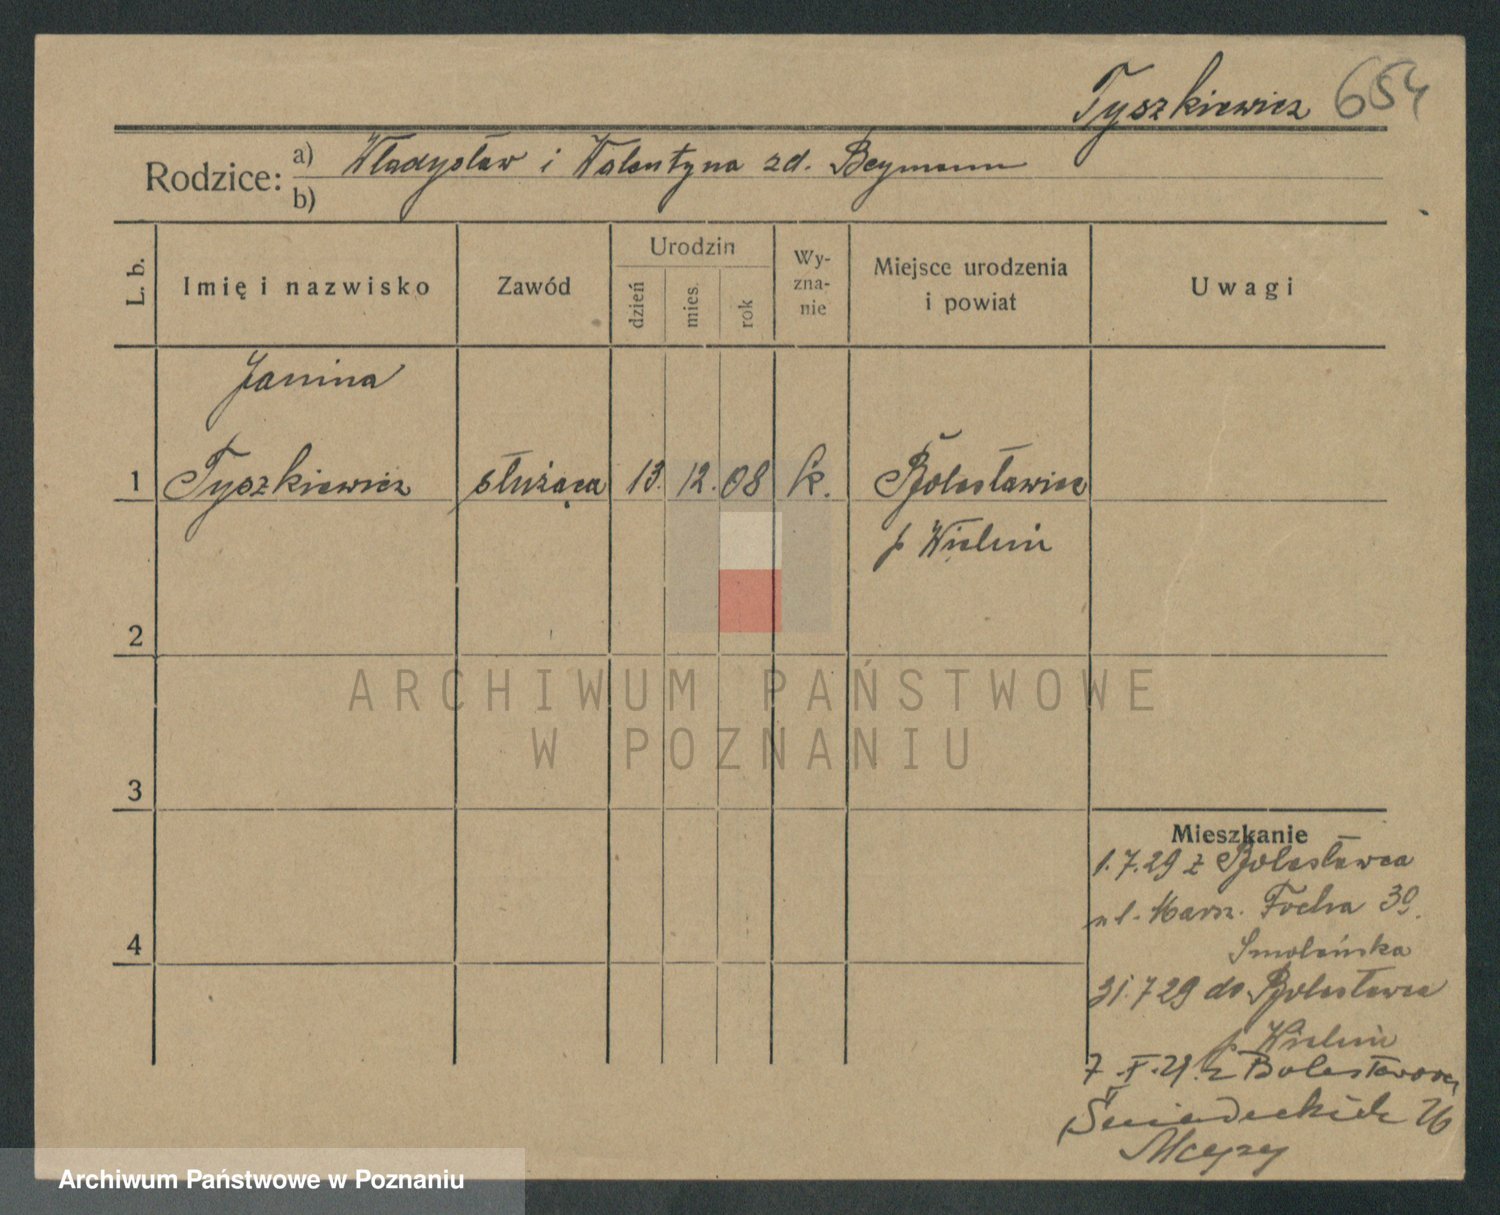 Tyszkiewicz 654
Rodzice: a) Władysław i Walentyna zd. Beymann
b)
L. b. Imię i nazwisko Zawód Urodzin dzień mies. rok Wy-
zna-
nie Miejsce urodzenia
i powiat Uwagi
Janina
1 Tyszkiewicz służąca 13. 12. 08 k. Bolesławiec
p Wieluń
2
3
4
ARCHIWUM PAŃSTWOWE
W POZNANIU
Mieszkanie
1.7.29 z Bolesławca
ul. Marsz. Focha 39.
Smoleńska
31.7 29 do Bolesławca
p. Wieluń
7.X.29. z Bolesławca
Śniadeckich 26
Archiwum Państwowe w Poznaniu